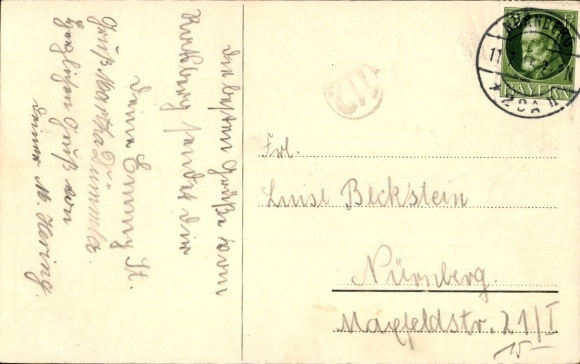 die besten Grüße vom
Rathsberg sendet dir
Deine Emmy St.
Gruß Martha
Herzlichen Gruß von
deiner M. Hering.
NÜRNBERG
BAYERN
2 CA II
112
Frl.
Luise Beckstein
Nürnberg.
Maxfeldstr. 21/I
15.-